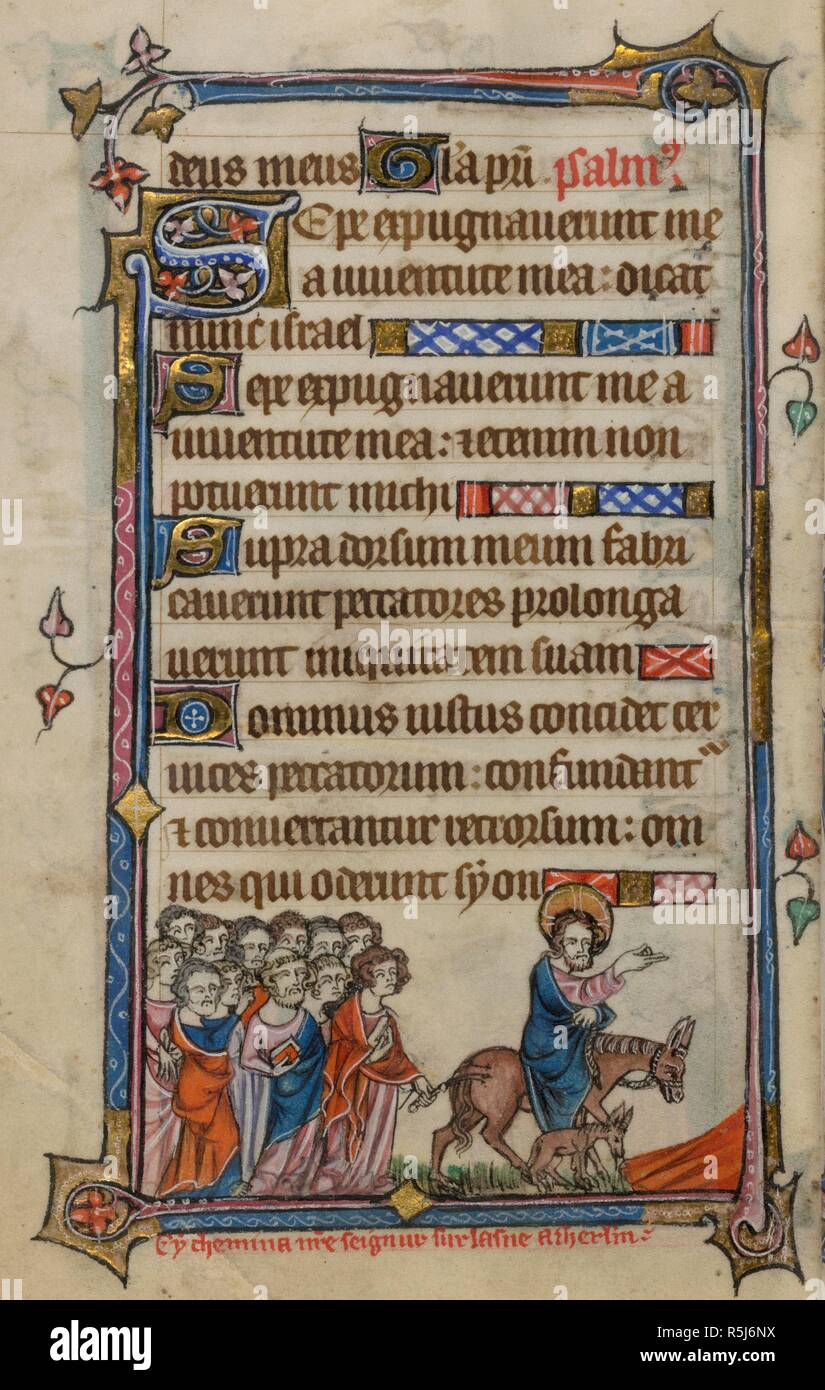 deus meus Gl'a pri psalm9
Sepe expugnauerunt me
a iuuentute mea: dicat
nunc israel
Sepe expugnauerunt me a
iuuentute mea: ⁊ etenim non
potuerunt michi
Supra dorsum meum fabri
cauerunt peccatores prolonga
uerunt iniquitatem suam
Dominus iustus concidet cer
uices peccatorum: confundant
⁊ conuertantur retrorsum: om
nes qui oderunt syon
Cy chemina nre seignur sur lasne a iherlm
alamy
Image ID: R5J6NX
www.alamy.com